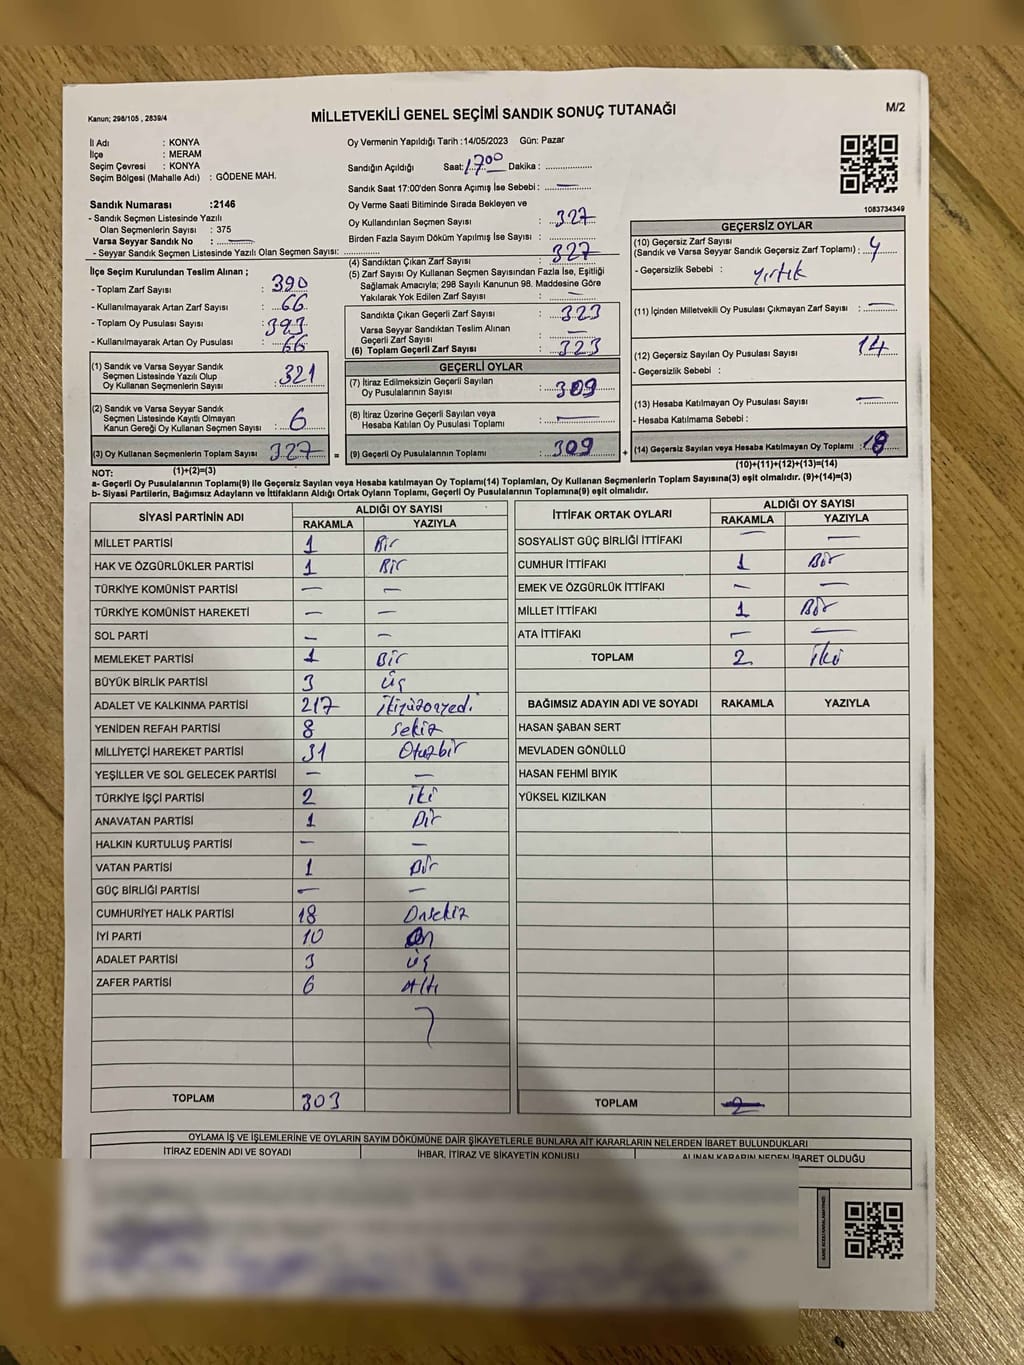 Kanun; 298/105 , 2839/4
MİLLETVEKİLİ GENEL SEÇİMİ SANDIK SONUÇ TUTANAĞI
M/2
İl Adı : KONYA
İlçe : MERAM
Seçim Çevresi : KONYA
Seçim Bölgesi (Mahalle Adı) : GÖDENE MAH.
Sandık Numarası :2146
- Sandık Seçmen Listesinde Yazılı
Olan Seçmenlerin Sayısı : 375
Varsa Seyyar Sandık No : —
- Seyyar Sandık Seçmen Listesinde Yazılı Olan Seçmen Sayısı:
Oy Vermenin Yapıldığı Tarih :14/05/2023 Gün: Pazar
Sandığın Açıldığı Saat: 17.00 Dakika :
Sandık Saat 17:00'den Sonra Açımış İse Sebebi : —
Oy Verme Saati Bitiminde Sırada Bekleyen ve
Oy Kullandırılan Seçmen Sayısı : 327
Birden Fazla Sayım Döküm Yapılmış İse Sayısı :
(4) Sandıktan Çıkan Zarf Sayısı : 327
(5) Zarf Sayısı Oy Kullanan Seçmen Sayısından Fazla İse, Eşitliği
Sağlamak Amacıyla; 298 Sayılı Kanunun 98. Maddesine Göre
Yakılarak Yok Edilen Zarf Sayısı : —
1083734349
İlçe Seçim Kurulundan Teslim Alınan ;
- Toplam Zarf Sayısı : 390
- Kullanılmayarak Artan Zarf Sayısı : 66
- Toplam Oy Pusulası Sayısı : 393
- Kullanılmayarak Artan Oy Pusulası : 66
(1) Sandık ve Varsa Seyyar Sandık
Seçmen Listesinde Yazılı Olup
Oy Kullanan Seçmenlerin Sayısı : 321
(2) Sandık ve Varsa Seyyar Sandık
Seçmen Listesinde Kayıtlı Olmayan
Kanun Gereği Oy Kullanan Seçmen Sayısı : 6
(3) Oy Kullanan Seçmenlerin Toplam Sayısı : 327 =
Sandıkta Çıkan Geçerli Zarf Sayısı : 323
Varsa Seyyar Sandıktan Teslim Alınan
Geçerli Zarf Sayısı : —
(6) Toplam Geçerli Zarf Sayısı : 323
GEÇERLİ OYLAR
(7) İtiraz Edilmeksizin Geçerli Sayılan
Oy Pusulalarının Sayısı : 309
(8) İtiraz Üzerine Geçerli Sayılan veya
Hesaba Katılan Oy Pusulası Toplamı : —
(9) Geçerli Oy Pusulalarının Toplamı : 309 +
GEÇERSİZ OYLAR
(10) Geçersiz Zarf Sayısı
(Sandık ve Varsa Seyyar Sandık Geçersiz Zarf Toplamı) : 4
- Geçersizlik Sebebi : yırtık
(11) İçinden Milletvekili Oy Pusulası Çıkmayan Zarf Sayısı : —
(12) Geçersiz Sayılan Oy Pusulası Sayısı : 14
- Geçersizlik Sebebi :
(13) Hesaba Katılmayan Oy Pusulası Sayısı : —
- Hesaba Katılmama Sebebi :
(14) Geçersiz Sayılan veya Hesaba Katılmayan Oy Toplamı : 18
NOT: (1)+(2)=(3)
(10)+(11)+(12)+(13)=(14)
a- Geçerli Oy Pusulalarının Toplamı(9) ile Geçersiz Sayılan veya Hesaba Katılmayan Oy Toplamı(14) Toplamları, Oy Kullanan Seçmenlerin Toplam Sayısına(3) eşit olmalıdır. (9)+(14)=(3)
b- Siyasi Partilerin, Bağımsız Adayların ve İttifakların Aldığı Ortak Oyların Toplamı, Geçerli Oy Pusulalarının Toplamına(9) eşit olmalıdır.
SİYASİ PARTİNİN ADI ALDIĞI OY SAYISI
RAKAMLA YAZIYLA
MİLLET PARTİSİ 1 Bir
HAK VE ÖZGÜRLÜKLER PARTİSİ 1 Bir
TÜRKİYE KOMÜNİST PARTİSİ — —
TÜRKİYE KOMÜNİST HAREKETİ — —
SOL PARTİ — —
MEMLEKET PARTİSİ 1 Bir
BÜYÜK BİRLİK PARTİSİ 3 üç
ADALET VE KALKINMA PARTİSİ 217 ikiyüzonyedi
YENİDEN REFAH PARTİSİ 8 sekiz
MİLLİYETÇİ HAREKET PARTİSİ 31 Otuzbir
YEŞİLLER VE SOL GELECEK PARTİSİ — —
TÜRKİYE İŞÇİ PARTİSİ 2 iki
ANAVATAN PARTİSİ 1 Bir
HALKIN KURTULUŞ PARTİSİ — —
VATAN PARTİSİ 1 Bir
GÜÇ BİRLİĞİ PARTİSİ — —
CUMHURİYET HALK PARTİSİ 18 Onsekiz
İYİ PARTİ 10 On
ADALET PARTİSİ 3 üç
ZAFER PARTİSİ 6 Altı
TOPLAM 303
İTTİFAK ORTAK OYLARI ALDIĞI OY SAYISI
RAKAMLA YAZIYLA
SOSYALİST GÜÇ BİRLİĞİ İTTİFAKI — —
CUMHUR İTTİFAKI 1 Bir
EMEK VE ÖZGÜRLÜK İTTİFAKI — —
MİLLET İTTİFAKI 1 Bir
ATA İTTİFAKI — —
TOPLAM 2 iki
BAĞIMSIZ ADAYIN ADI VE SOYADI RAKAMLA YAZIYLA
HASAN ŞABAN SERT
MEVLADEN GÖNÜLLÜ
HASAN FEHMİ BIYIK
YÜKSEL KIZILKAN
TOPLAM 2
OYLAMA İŞ VE İŞLEMLERİNE VE OYLARIN SAYIM DÖKÜMÜNE DAİR ŞİKAYETLERLE BUNLARA AİT KARARLARIN NELERDEN İBARET BULUNDUKLARI
İTİRAZ EDENİN ADI VE SOYADI İHBAR, İTİRAZ VE ŞİKAYETİN KONUSU ALINAN KARARIN NEDEN İBARET OLDUĞU